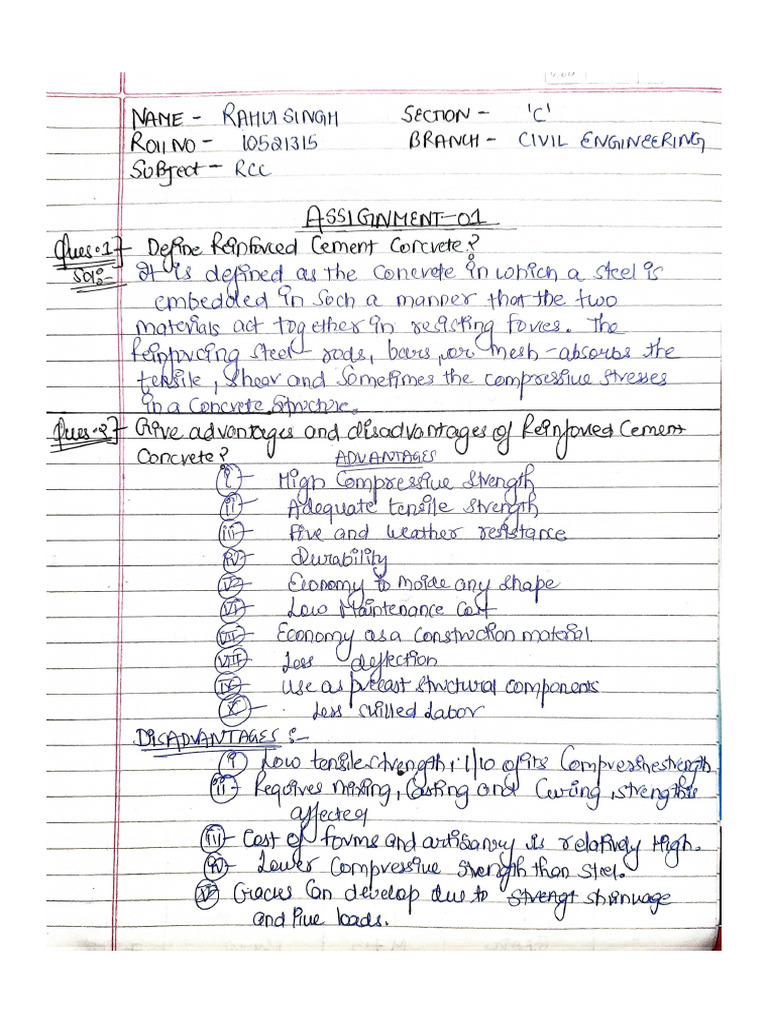 NAME - RAHUL SINGH SECTION - 'C'
Roll NO - 10521315 BRANCH - CIVIL ENGINEERING
Subject - RCC
ASSIGNMENT-01
Ques.1 Define Reinforced Cement Concrete?
Sol:- It is defined as the Concrete in which a steel is
embedded in such a manner that the two
materials act together in resisting forces. The
Reinforcing steel- rods, bars, or mesh - absorbs the
tensile, shear and Sometimes the compressive stresses
in a Concrete Structure.
Ques-2 Give advantages and disadvantages of Reinforced Cement
Concrete? ADVANTAGES
(i) - High Compressive Strength
(ii) - Adequate tensile Strength
(iii) - Fire and weather resistance
(iv) - Durability
(v) - Economy to molde any shape
(vi) - Low Maintenance Cost
(vii) - Economy as a Construction material
(viii) - Less deflection
(ix) - use as precast structural components
(x) - Less skilled Labor
DISADVANTAGES :-
(i) - Low tensile strength, 1/10 of its Compressive strength
(ii) - Requires mixing, Casting and Curing, strength is
affected
(iii) - Cost of forms and artisanry is relatively High.
(iv) - Lower Compressive Strength than Steel.
(v) - Cracks Can develop due to strengt shrinkage
and live loads.